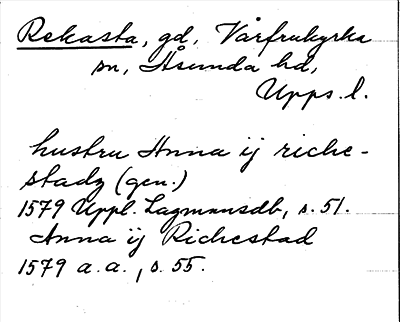 Rekasta, gd, Vårfrukyrka
sn, Åsunda hd,
Upps. l.
hustru Anna ij riche-
stadz (gen.)
1579 Uppl. Lagmansdb, s. 51.
Anna ij Richestad
1579 a. a., s. 55.